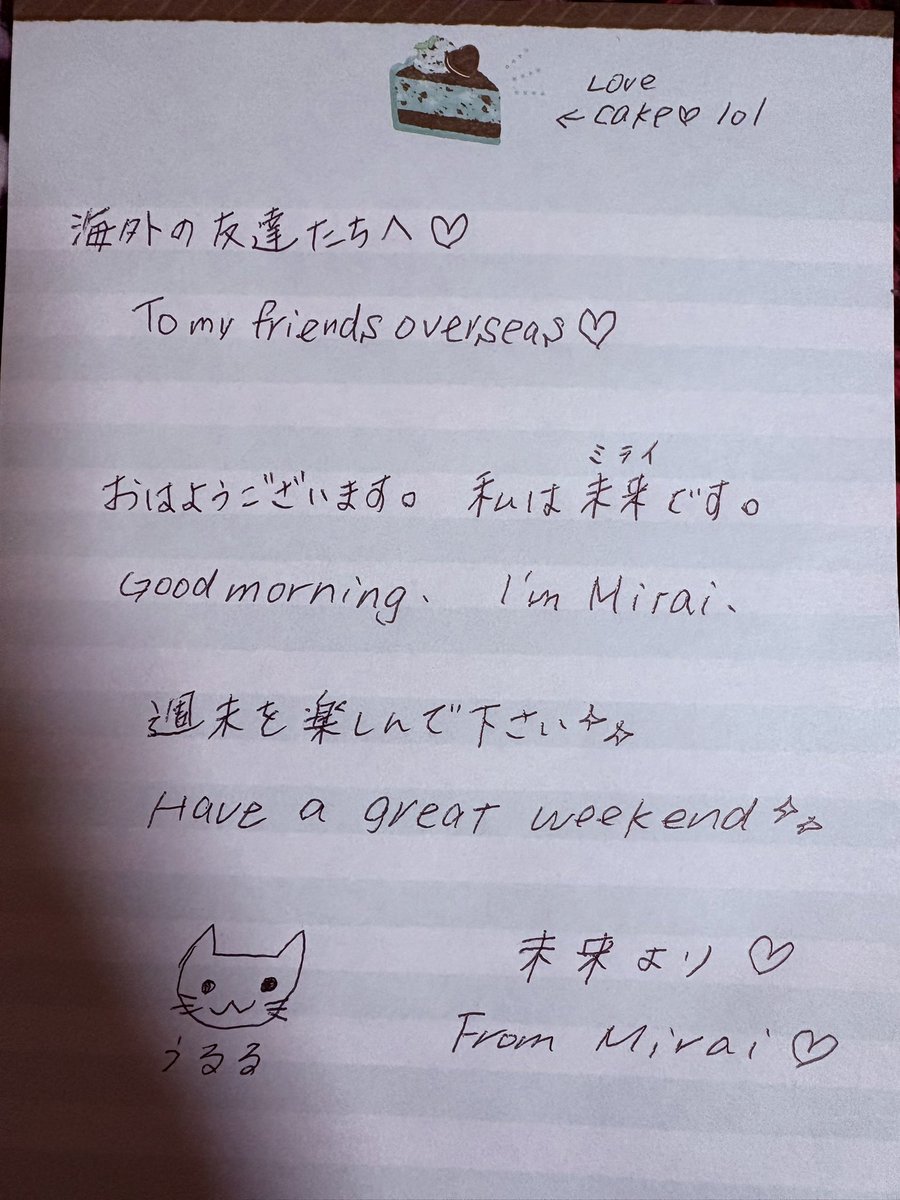 Love
← cake♡ lol
海外の友達たちへ♡
To my friends overseas♡
ミライ
おはようございます。 私は未来です。
Good morning. I'm Mirai.
週末を楽しんで下さい✧✧
Have a great weekend✧✧
未来より♡
From Mirai♡
うるる